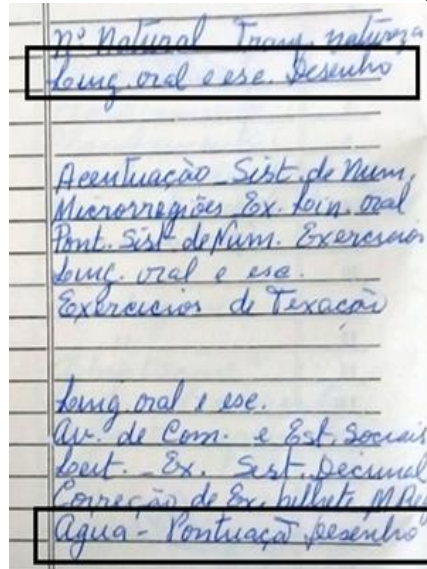 nº Natural Trans. natureza
Ling. oral e esc. Desenho
Acentuação Sist. de Num.
Microrregiões Ex. Lin. oral
Pont. Sist. de Num. Exercícios
Ling. oral e esc.
Exercícios de Fixação
Ling. oral e esc.
Av. de Com. e Est. Sociais
Leit. Ex. Sist. Decimal
Correção de Ex. bilhete
Água - Pontuação Desenho